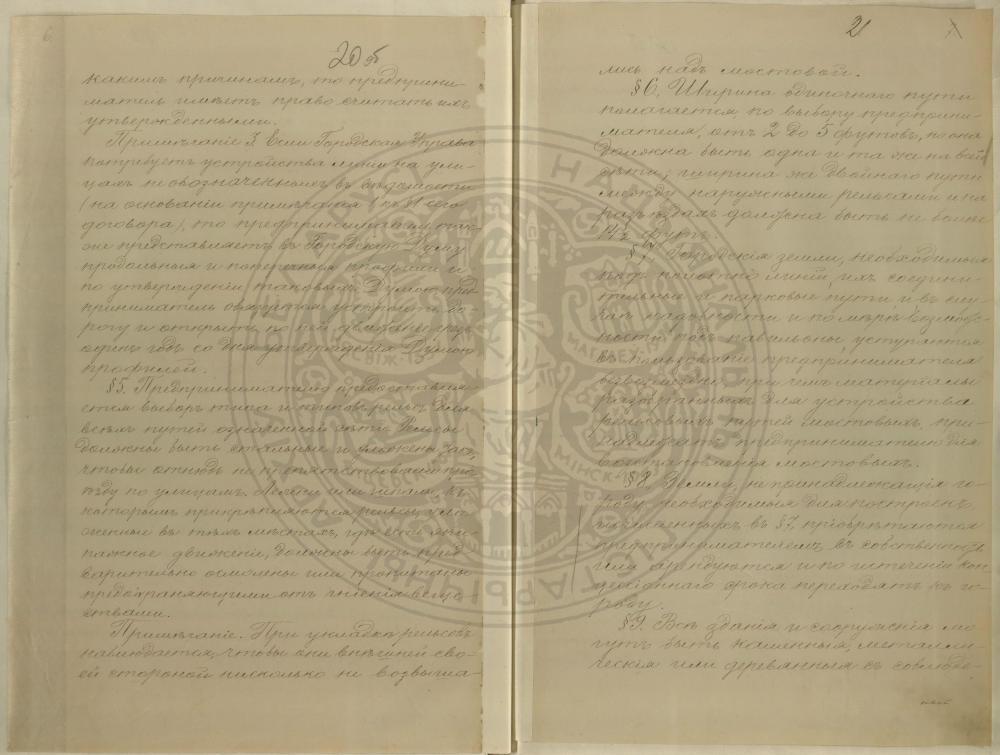 20 об
какимъ причинамъ, то предприни-
матель имѣетъ право считать ихъ
утвержденными.
Примѣчаніе 3. Если Городская Управа
потребуетъ устройства линіи на ули-
цахъ не обозначенныхъ въ вѣдомости
(на основаніи примѣчанія 1 къ § 1 сего
договора), то предприниматель так-
же представляетъ въ Городскую Думу
продольные и поперечные профили и
по утвержденіи таковыхъ Думою пред-
приниматель обязуется устроить до-
рогу и открыть по ней движеніе чрезъ
одинъ годъ со дня утвержденія Думою
профилей.
§5. Предпринимателю предоставля-
ется выборъ типа и рельсъ для
всѣхъ путей означенной сѣти. Рельсы
должны быть стальные и уложены такъ,
чтобы отнюдь не препятствовали про-
ѣзду по улицамъ. Лежни или шпалы, къ
которымъ прикрѣпляются рельсы, уло-
женные въ тѣхъ мѣстахъ, гдѣ есть эки-
пажное движеніе, должны быть пред-
варительно осмолены или пропитаны
предохраняющими отъ гніенія веще-
ствами.
Примѣчаніе. При укладкѣ рельсовъ
наблюдается, чтобы они внѣшней сво-
ей стороной нисколько не возвыша-
21
лись надъ мостовой.
§6. Ширина одиночнаго пути
полагается, по выбору предприни-
мателя, отъ 2 до 5 футовъ, но она
должна быть одна и та же на всей
сѣти; ширина же двойнаго пути
между наружными рельсами и на
разъѣздахъ должна быть не болѣе
14½ футъ.
§7. Городскія земли, необходимыя
подъ полотно линій, ихъ соедини-
тельные и парковые пути и въ слу-
чаѣ надобности и по мѣрѣ возможно-
сти подъ павильоны уступаются
въ пользованіе предпринимателя
безвозмездно, при чемъ матеріалы
разобранныхъ для устройства
рельсовыхъ путей мостовыхъ, при-
надлежатъ предпринимателю для
возстановленія мостовыхъ.
§8. Земли, не принадлежащія го-
роду, необходимыя для построекъ,
означенныхъ въ §7, пріобрѣтаются
предпринимателемъ въ собственность
или арендуются и по истеченіи кон-
цессіоннаго срока переходятъ къ го-
роду.
§9. Всѣ зданія и сооруженія мо-
гутъ быть каменныя, металли-
ческія или деревянныя съ соблюде-